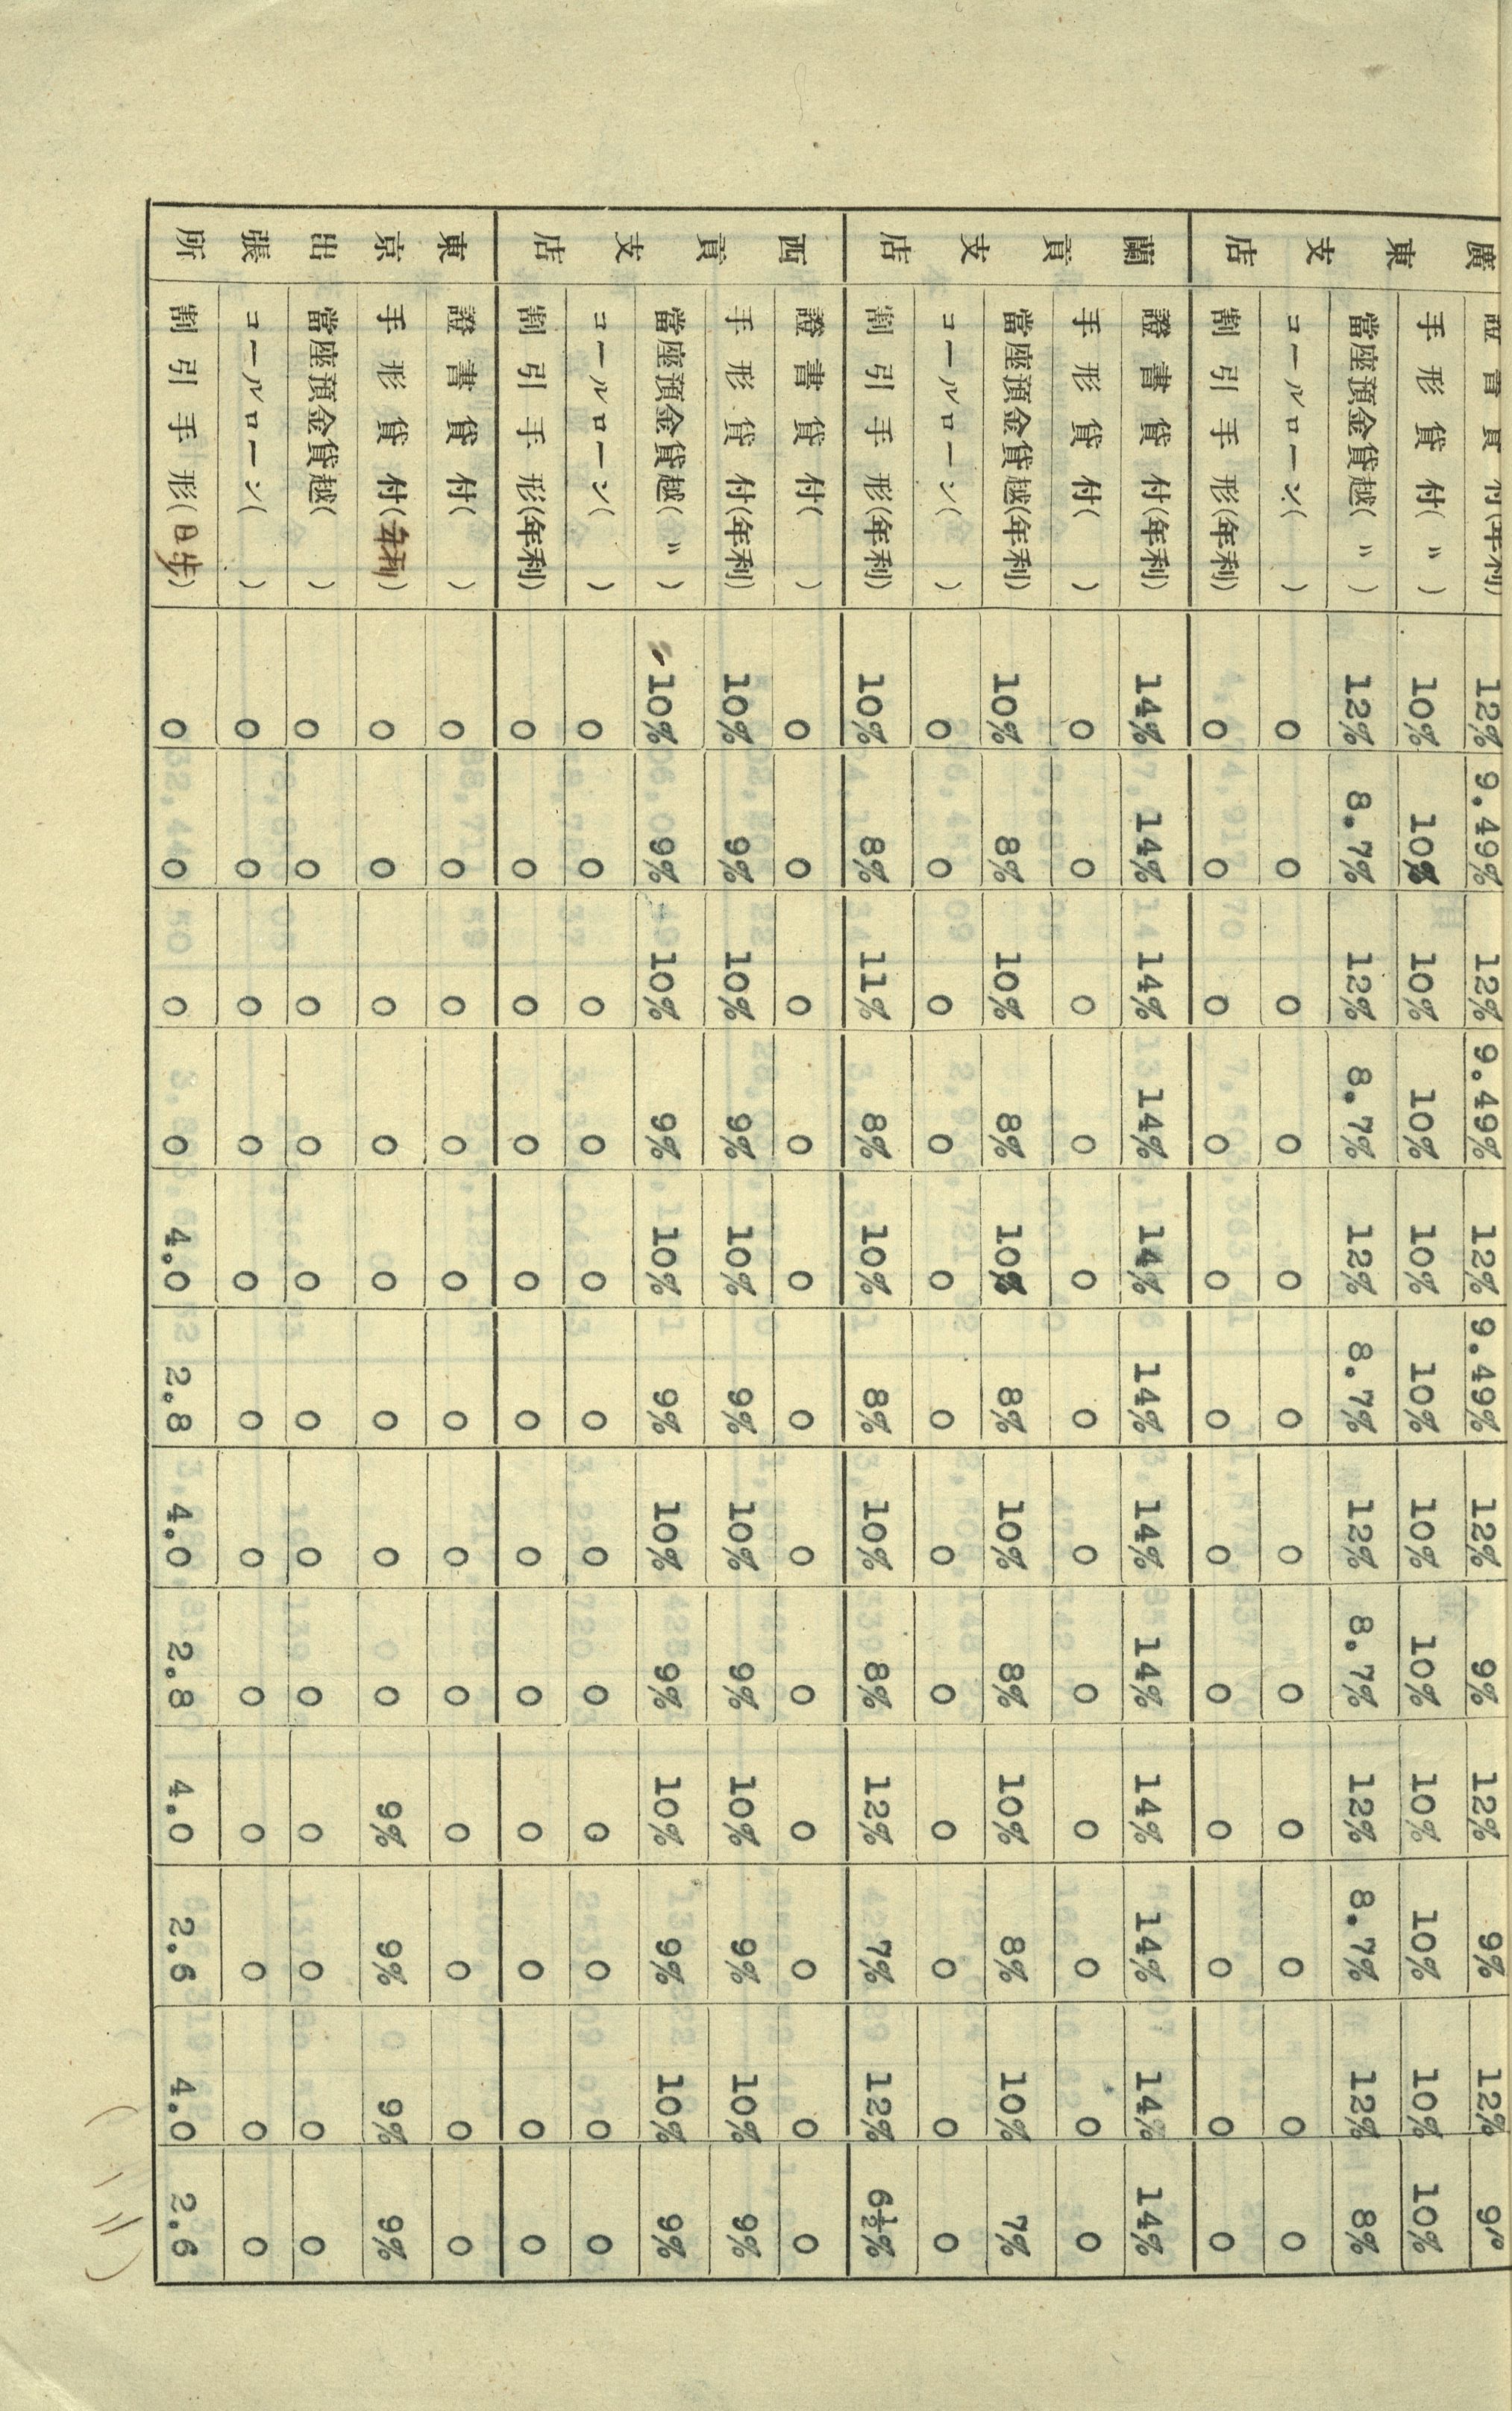 廣東支店 證書貸付(年利) 12% 9.49% 12% 9.49% 12% 9.49% 12% 9% 12% 9% 12% 9%
手形貸付( 〃 ) 10% 10% 10% 10% 10% 10% 10% 10% 10% 10% 10% 10%
當座預金貸越( 〃 ) 12% 8.7% 12% 8.7% 12% 8.7% 12% 8.7% 12% 8.7% 12% 8%
コールローン( ) 0 0 0 0 0 0 0 0 0 0 0 0
割引手形(年利) 0 0 0 0 0 0 0 0 0 0 0 0
蘭貢支店 證書貸付(年利) 14% 14% 14% 14% 14% 14% 14% 14% 14% 14% 14% 14%
手形貸付( ) 0 0 0 0 0 0 0 0 0 0 0 0
當座預金貸越(年利) 10% 8% 10% 8% 10% 8% 10% 8% 10% 8% 10% 7%
コールローン( ) 0 0 0 0 0 0 0 0 0 0 0 0
割引手形(年利) 10% 8% 11% 8% 10% 8% 10% 8% 12% 7% 12% 6½%
西貢支店 證書貸付( ) 0 0 0 0 0 0 0 0 0 0 0 0
手形貸付(年利) 10% 9% 10% 9% 10% 9% 10% 9% 10% 9% 10% 9%
當座預金貸越( 〃 ) 10% 9% 10% 9% 10% 9% 10% 9% 10% 9% 10% 9%
コールローン( ) 0 0 0 0 0 0 0 0 0 0 0 0
割引手形(年利) 0 0 0 0 0 0 0 0 0 0 0 0
東京出張所 證書貸付( ) 0 0 0 0 0 0 0 0 0 0 0 0
手形貸付(年利) 0 0 0 0 0 0 0 0 9% 9% 9% 9%
當座預金貸越( ) 0 0 0 0 0 0 0 0 0 0 0 0
コールローン( ) 0 0 0 0 0 0 0 0 0 0 0 0
割引手形(日歩) 0 0 0 0 4.0 2.8 4.0 2.8 4.0 2.6 4.0 2.6